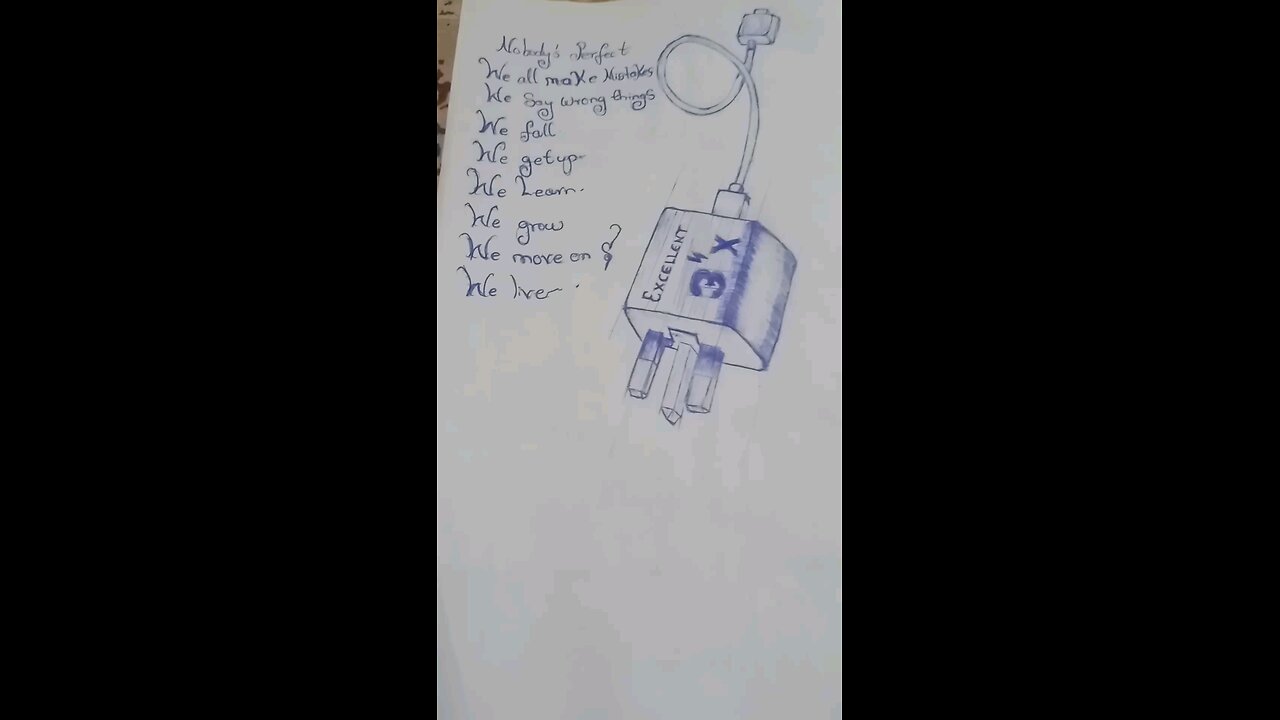 Nobody's Perfect
We all make Mistakes
We Say wrong things
We fall
We get up
We Learn.
We grow
We move on &
We live.
EXCELLENT
3'X